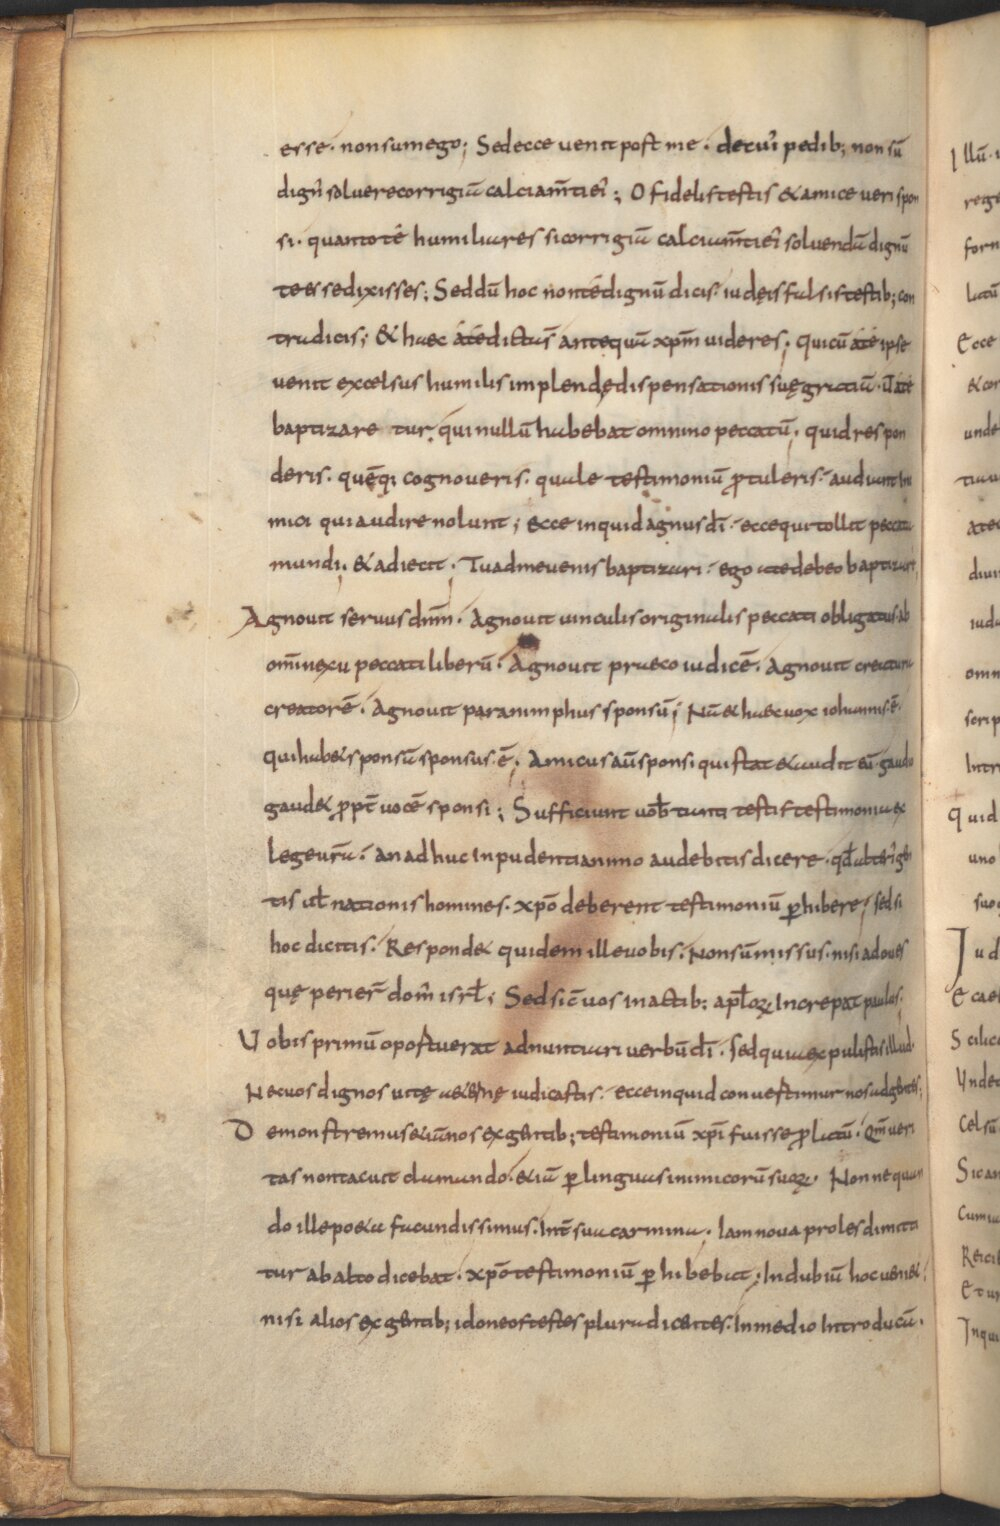 esse· nonsumego; Sedecce uenit post me· decui᾽ pedib; non sū
dign᾽ soluerecorrigiū calciam̄tiei᾽; O fidelistestis & amiceueri spon
si· quantotē humiliares sicorrigiū calciam̄tiei᾽ soluendū dignū
teessedixisses; Seddū hoc nontēdignū dicis iudęisfalsistestib; con
tradicis; & haec atēdictus̄ antequā xp̄m uideres· quicū ate ipse
uenit excelsus humilis implendędispensationis suęgratiā· Vate
baptizare tur, qui nullū habebat omnino peccatū· quid respon
deris· quēq; cognoueris· quale testimoniū ꝓtuleris· audiant ini
mici qui audire nolunt; ecce inquid agnus dī· eccequi tollit peccata
mundi; & adiecit· Tuadmeuenis baptizari· ego atedebeo baptizari;
Agnouit seruus dnm̄· Agnouit uinculis originalis peccati obligatus· ab
om̄inexu peccati liberū· Agnouit praeco iudicē· Agnouit creatura
creatorē· Agnouit paranimphus sponsū; Nā & haecuox iohannis·ē·
quihab&sponsā sponsus·ē; Amicus aū sponsi qui stat & audit eū· gaudio
gaud& ꝓpt̄ uocē sponsi; Sufficiunt uob̄ tanti testis testimonia ex
legeurā· an adhuc inpudentianimo audebitis dicere· qd̄ alteri᾽ gen
tis ul̄ nationis homines· xpō deberent testimoniū ꝑhibere; sed si
hoc dicitis· Respond& quidem illeuobis· Nonsū missus· nisi ad oues
quę perier̄ dom᾽ isrl̄; Sed sic̄ uos inactib; apl̄oꝝ increpat paulus·
Vobisprimū oportuerat adnuntiari uerbū dī· sed quia expulistis illud·
Necuos dignos uitę aet̄nę iudicastis· ecceinquid conuertimur nos adgentes;
Demonstremus&iānos exgentib; testimoniū xpī fuisse ꝓlatū· qm̄ ueri
tas nontacuit clamando· &iā ꝑ linguas inimicorū suoꝝ· Non ne quan
do illepo&a facundissimus· Int̄ sua carmina· Iam noua proles dimitti
tur ab alto dicebat· xpō testimoniū ꝑhibebat; In dubiū hoc ueni&;
nisi alios exgentib; idoneostestes plura dicentes· Inmedio introducā·